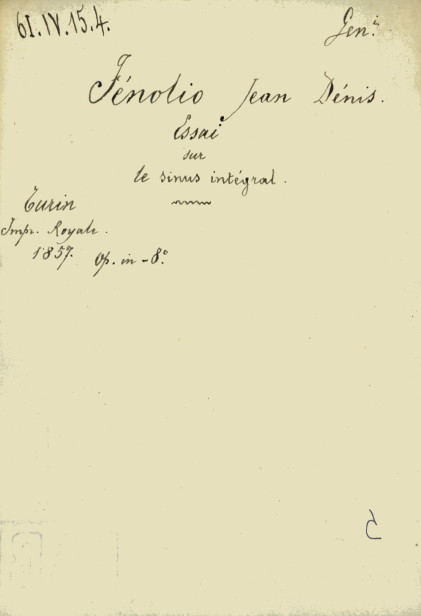 61.IV.15.4.
Gen.
Fénolio Jean Dénis.
Essai
sur
le sinus intégral.
Turin
Impr. Royale.
1857. Op. in-8.°